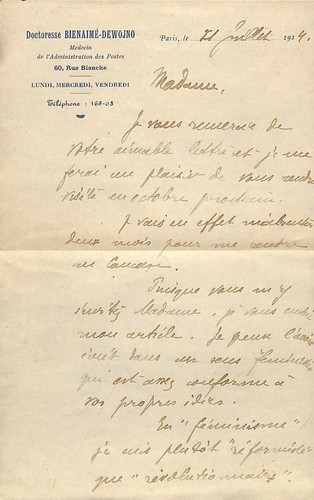 Doctoresse BIENAIMÉ-DEWOJNO
Médecin
de l'Administration des Postes
60, Rue Blanche
LUNDI, MERCREDI, VENDREDI
Téléphone : 168-03
Paris, le 21 juillet 1914.
Madame,
Je vous remercie de
votre aimable lettre et je me
ferai un plaisir de vous rendre
visite en octobre prochain.
Je vais en effet m'absenter
deux mois pour me rendre
au Caucase.
Puisque vous m'y
invitez Madame, je vous
mon article. Je pense l'avoir
écrit dans un sens féministe
qui est assez conforme à
vos propres idées.
En "féminisme"
je suis plutôt "réformiste"
que "révolutionnaire".